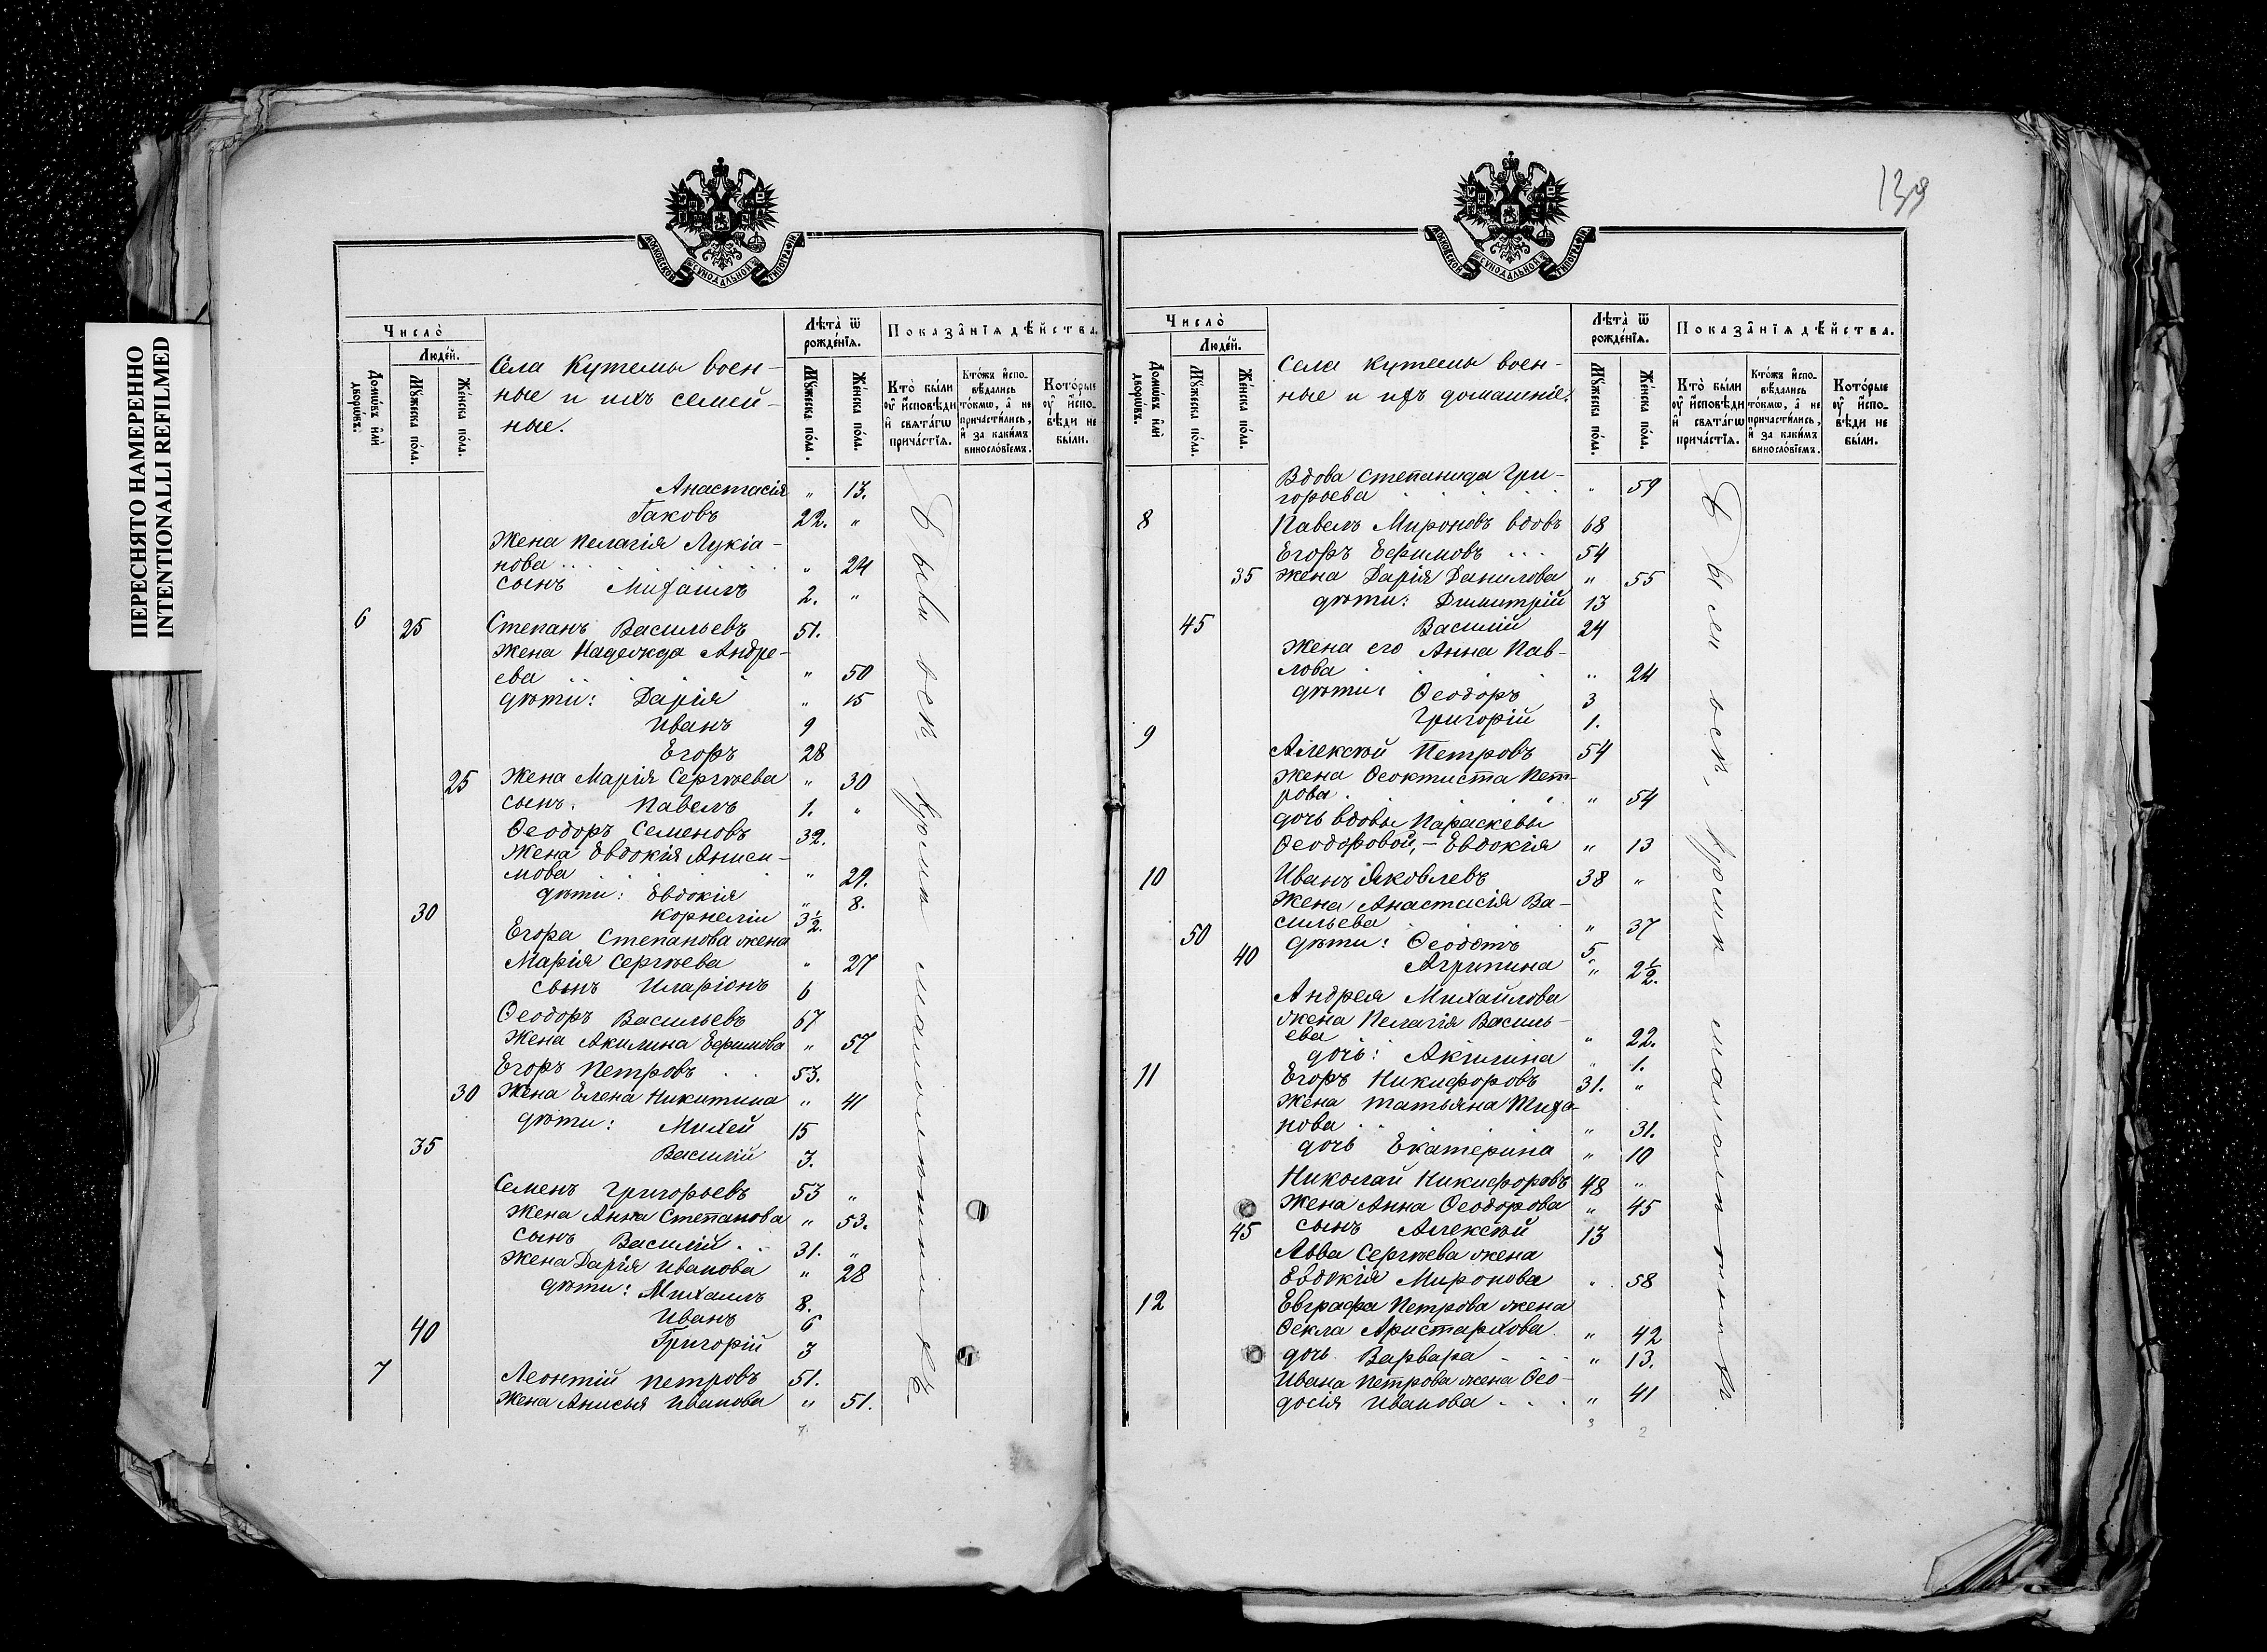 ПЕРЕСНЯТО НАМЕРЕННО
INTENTIONALLI REFILMED
МОСКОВСКОЙ СѴНОДАЛЬНОЙ ТИПОГРАФІИ
Число̀
Людéй.
Домѡ́въ и҆лѝ дворѡ́въ.
Мꙋ́жеска по́ла.
Же́нска по́ла.
Села Кутемы воен-
ные и ихъ семей-
ные.
Лѣ́та ѿ рожде́нїѧ.
Мꙋ́жеска по́ла.
Же́нска по́ла.
Показа̑нїѧ дѣ́йства.
Кто̀ бы́ли ᲂу҆ и҆сповѣ́ди и҆ свѧта́гѡ прича́стїѧ.
Кто́жъ и҆спо-вѣ́дались то́кмѡ, а҆ не причасти́лись, и҆ за каки́мъ винослóвїемъ.
Кото́рые ᲂу҆ и҆спо-вѣ́ди не бы́ли.
Анастасія " 13.
Іаковъ 22. "
Жена Пелагія Лукіа-
нова " 24
сынъ Михаилъ 2. "
6 25 Степанъ Васильевъ 51.
Жена Надежда Андре-
ева " 50
дѣти: Дарія " 15
Иванъ 9
Егоръ 28
25 Жена Марія Сергѣева " 30
сынъ Павелъ 1. "
Ѳеодоръ Семеновъ 32.
Жена Евдокія Аниси-
мова " 29.
дѣти: Евдокія " 8.
30 Корнелій 3½.
Егора Степанова жена
Марія Сергѣева " 27
сынъ Иларіонъ 6
Ѳеодоръ Васильевъ 67
Жена Акилина Ефимова " 57
Егоръ Петровъ 53.
30 Жена Елена Никитина " 41
дѣти: Михей 15
35 Василій 3.
Семенъ Григорьевъ 53 "
Жена Анна Степанова " 53.
сынъ Василій 31. "
Жена Дарія Иванова " 28
дѣти: Михаилъ 8.
Иванъ 6
40 Григорій 3
7 Леонтій Петровъ 51.
Жена Анисья Иванова " 51.
7
Были всѣ кромѣ малолѣтнихъ
139
МОСКОВСКОЙ СѴНОДАЛЬНОЙ ТИПОГРАФІИ
Число̀
Людéй.
Домѡ́въ и҆лѝ дворѡ́въ.
Мꙋ́жеска по́ла.
Же́нска по́ла.
Села Кутемы воен-
ные и ихъ домашніе.
Лѣ́та ѿ рожде́нїѧ.
Мꙋ́жеска по́ла.
Же́нска по́ла.
Показа̑нїѧ дѣ́йства.
Кто̀ бы́ли ᲂу҆ и҆сповѣ́ди и҆ свѧта́гѡ прича́стїѧ.
Кто́жъ и҆спо-вѣ́дались то́кмѡ, а҆ не причасти́лись, и҆ за каки́мъ винослóвїемъ.
Кото́рые ᲂу҆ и҆спо-вѣ́ди не бы́ли.
Вдова Степанида Гри-
горьева " 59
8 Павелъ Мироновъ вдовъ 68
Егоръ Ефимовъ 54
35 Жена Дарія Данилова " 55
дѣти: Димитрій 13
45 Василій 24
Жена его Анна Пав-
лова " 24
дѣти: Ѳеодоръ 3
Григорій 1.
9 Алексѣй Петровъ 54
Жена Ѳеоктиста Пет-
рова " 54
дочь вдовы Параскевы
Ѳеодоровой, - Евдокія " 13
10 Иванъ Яковлевъ 38 "
Жена Анастасія Ва-
сильева " 37
50 дѣти: Ѳеодотъ 5
40 Агрипина " 2½.
Андрея Михайлова
жена Пелагія Василь-
ева " 22.
дочь: Акилина " 1.
11 Егоръ Никифоровъ 31. "
Жена Татьяна Тиха-
нова " 31.
дочь Екатерина " 10
Николай Никифоровъ 48 "
Жена Анна Ѳеодорова " 45
45 сынъ Алексѣй 13
Авва Сергѣева жена
Евдокія Миронова " 58
12 Евграфа Петрова жена
Ѳекла Аристархова " 42
дочь Варвара " 13.
Ивана Петрова жена Ѳео-
досія Иванова " 41
3 2
Были всѣ, кромѣ малолѣтнихъ.